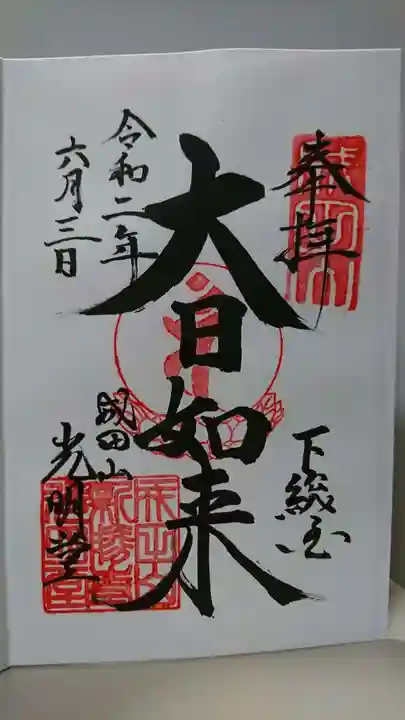 奉拝
下総国
大日如来
令和二年
六月三日
成田山
光明堂